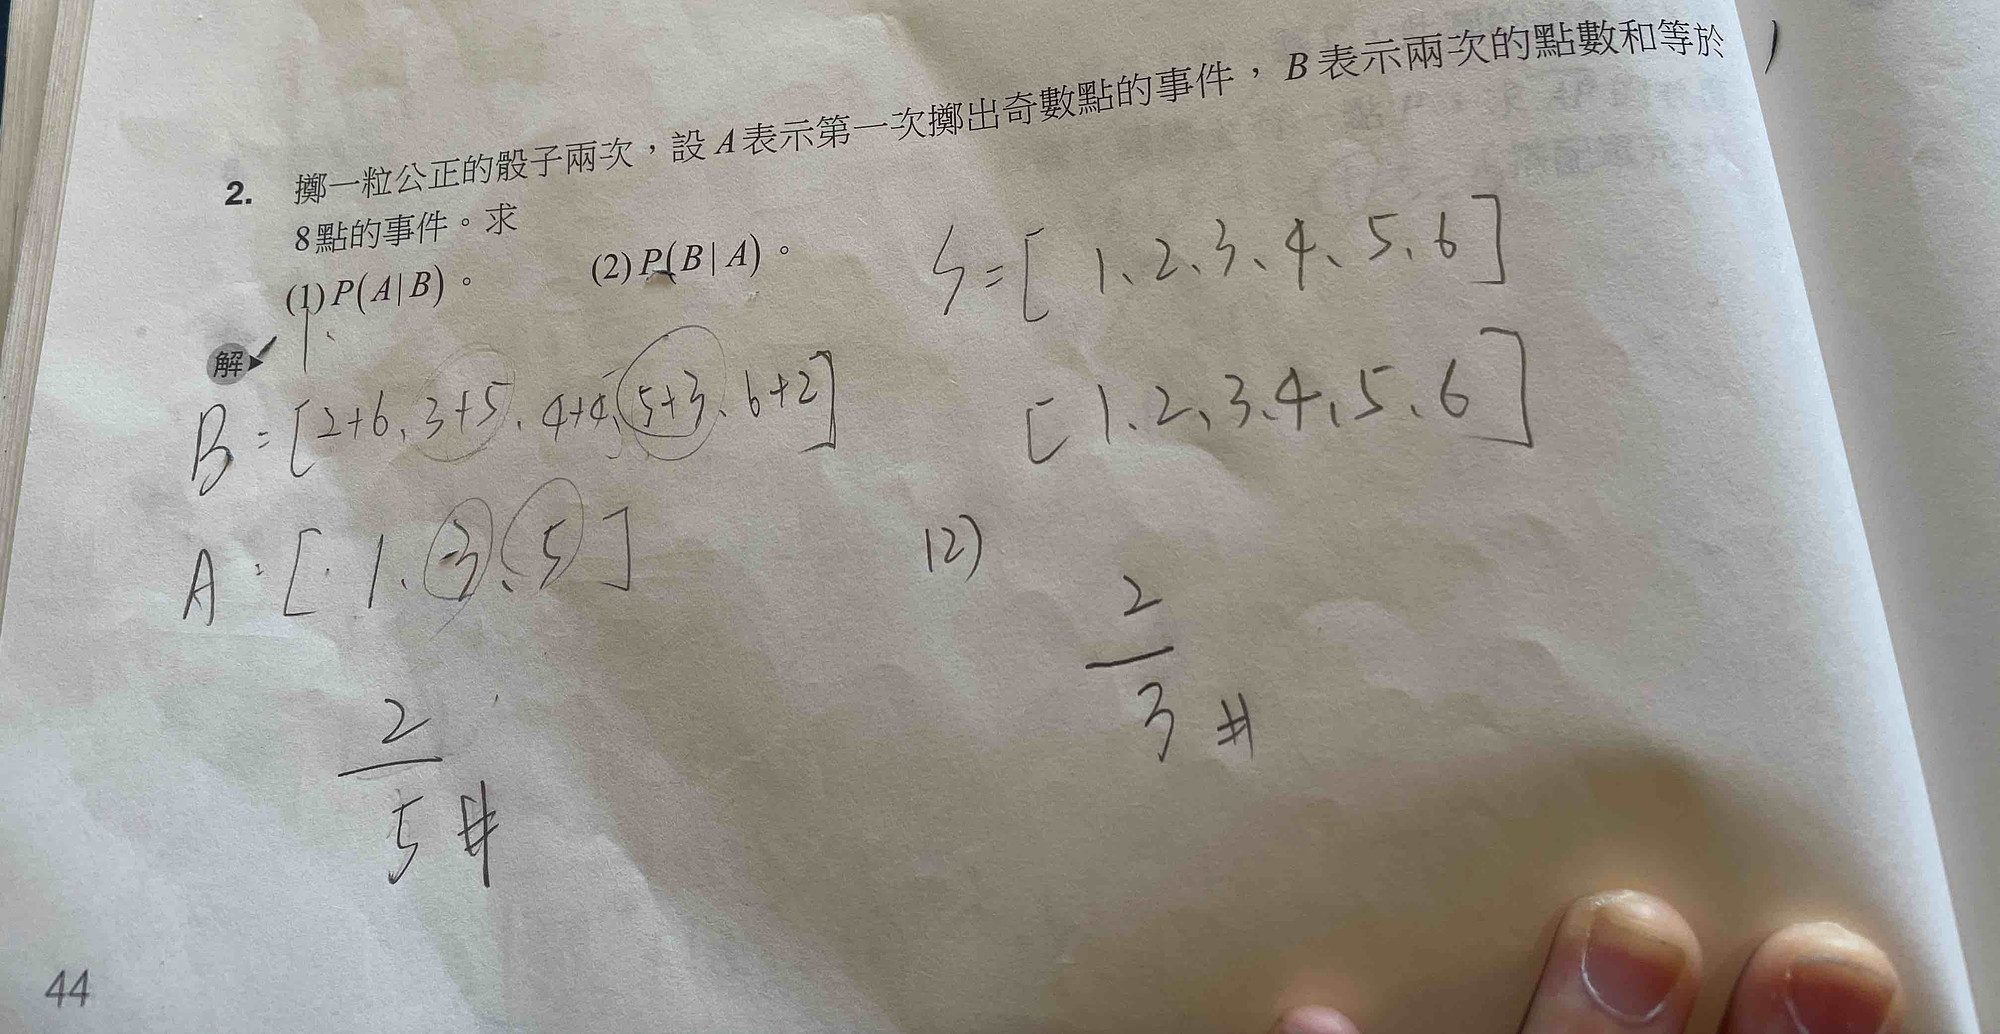 2. 擲一粒公正的骰子兩次，設 A 表示第一次擲出奇數點的事件，B 表示兩次的點數和等於
8點的事件。求
(1) P(A|B)。 (2) P(B|A)。
S=[1、2、3、4、5、6]
[1、2、3、4、5、6]
解
1.
B=[2+6、3+5、4+4、5+3、6+2]
A=[1、3、5]
2
5 #
(2)
2
3 #
44